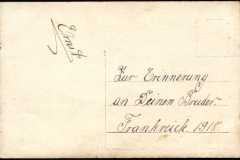 Ernst
Zur Erinnerung
an Deinen Bruder.
Frankreich 1918